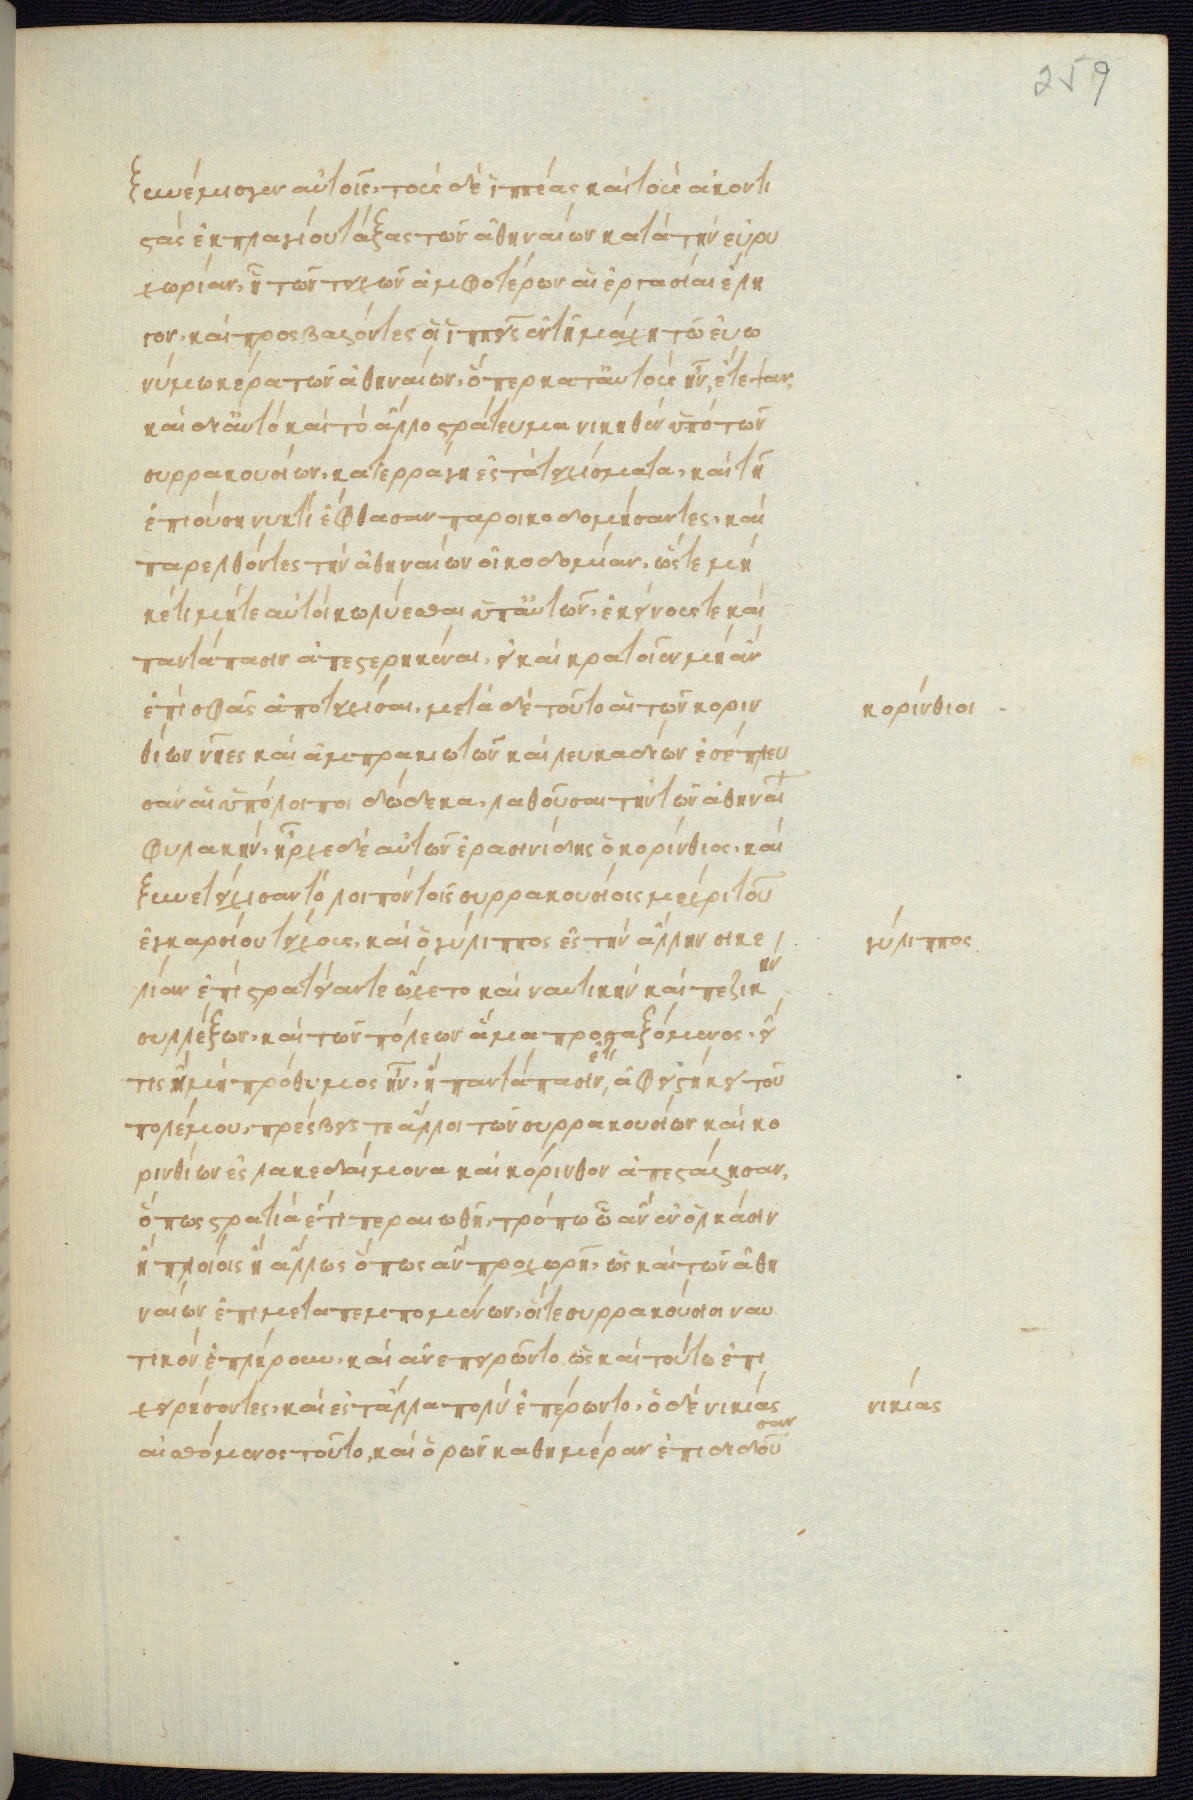 259
ξυνέμισγεν αὐτοῖς, τοὺς δὲ ἱππέας καὶ τοὺς ἀκοντι
στὰς ἐκ πλαγίου τάξας τῶν ἀθηναίων κατὰ τὴν εὐρυ
χωρίαν, ἧ τῶν τειχῶν ἀμφοτέρων αἱ ἐργασίαι ἔλη
γον, καὶ προσβαλόντες οἱ ἱππεῖς ἐν τῆ μάχη τῶ εὐω
νύμω κέρα τῶν ἀθηναίων, ὅπερ κατ' αὐτοὺς ἦν, ἔτρεψαν,
καὶ δι' αὐτὸ καὶ τὸ ἄλλο στράτευμα νικηθὲν ὑπὸ τῶν
συρρακουσίων, κατερράγη ἐς τὰ τειχίσματα, καὶ τῆ
ἐπιούση νυκτὶ ἔφθασαν παροικοδομήσαντες, καὶ
παρελθόντες τὴν ἀθηναίων οἰκοδομίαν, ὥστε μη
κέτι μήτε αὐτοὶ κωλύεσθαι ὑπ' αὐτῶν, ἐκείνους τε καὶ
παντάπασιν ἀπεστερηκέναι, εἰ καὶ κρατοῖεν μὴ ἂν
ἔτι σφᾶς ἀποτειχίσαι, μετὰ δὲ τοῦτο αἱ τῶν κοριν
θίων νῆες καὶ ἀμπρακιωτῶν καὶ λευκαδίων ἐσέπλευ
σαν αἱ ὑπόλοιποι δώδεκα, λαθοῦσαι τὴν τῶν ἀθηναί
φυλακήν, ἦρχε δὲ αὐτῶν ἐρασινίδης ὁ κορίνθιος, καὶ
ξυνετείχισαν τὸ λοιπὸν τοῖς συρρακουσίοις μέχρι τοῦ
ἐγκαρσίου τείχους, καὶ ὁ γύλιππος ἐς τὴν ἄλλην σικε
λίαν ἐπὶ στρατείαν τε ὤχετο καὶ ναυτικὴν καὶ πεζικὴν
συλλέξων, καὶ τῶν πόλεων ἅμα προσαξόμενος, εἴ
τις ἢ μὴ πρόθυμος ἦν, ἢ παντάπασιν ἔτι ἀφειστήκει τοῦ
πολέμου, πρέσβεις τε ἄλλοι τῶν συρρακουσίων καὶ κο
ρινθίων ἐς λακεδαίμονα καὶ κόρινθον ἀπεστάλησαν,
ὅπως στρατιὰ ἔτι περαιωθῆ, τρόπω ὧ ἂν ἐν ὁλκάσιν
ἢ πλοίοις ἢ ἄλλως ὅπως ἂν προχωρῆ, ὡς καὶ τῶν ἀθη
ναίων ἐπιμεταπεμπομένων, οἵ τε συρρακούσιοι ναυ
τικὸν ἐπλήρουν, καὶ ἀνεπειρῶντο ὡς καὶ τούτω ἐπι
χειρήσοντες, καὶ ἐς τἄλλα πολὺ ἐπέρωντο, ὁ δὲ νικίας
αἰσθόμενος τοῦτο, καὶ ὁρῶν καθημέραν ἐπιδιδοῦσαν
κορίνθιοι
γύλιππος
νικίας